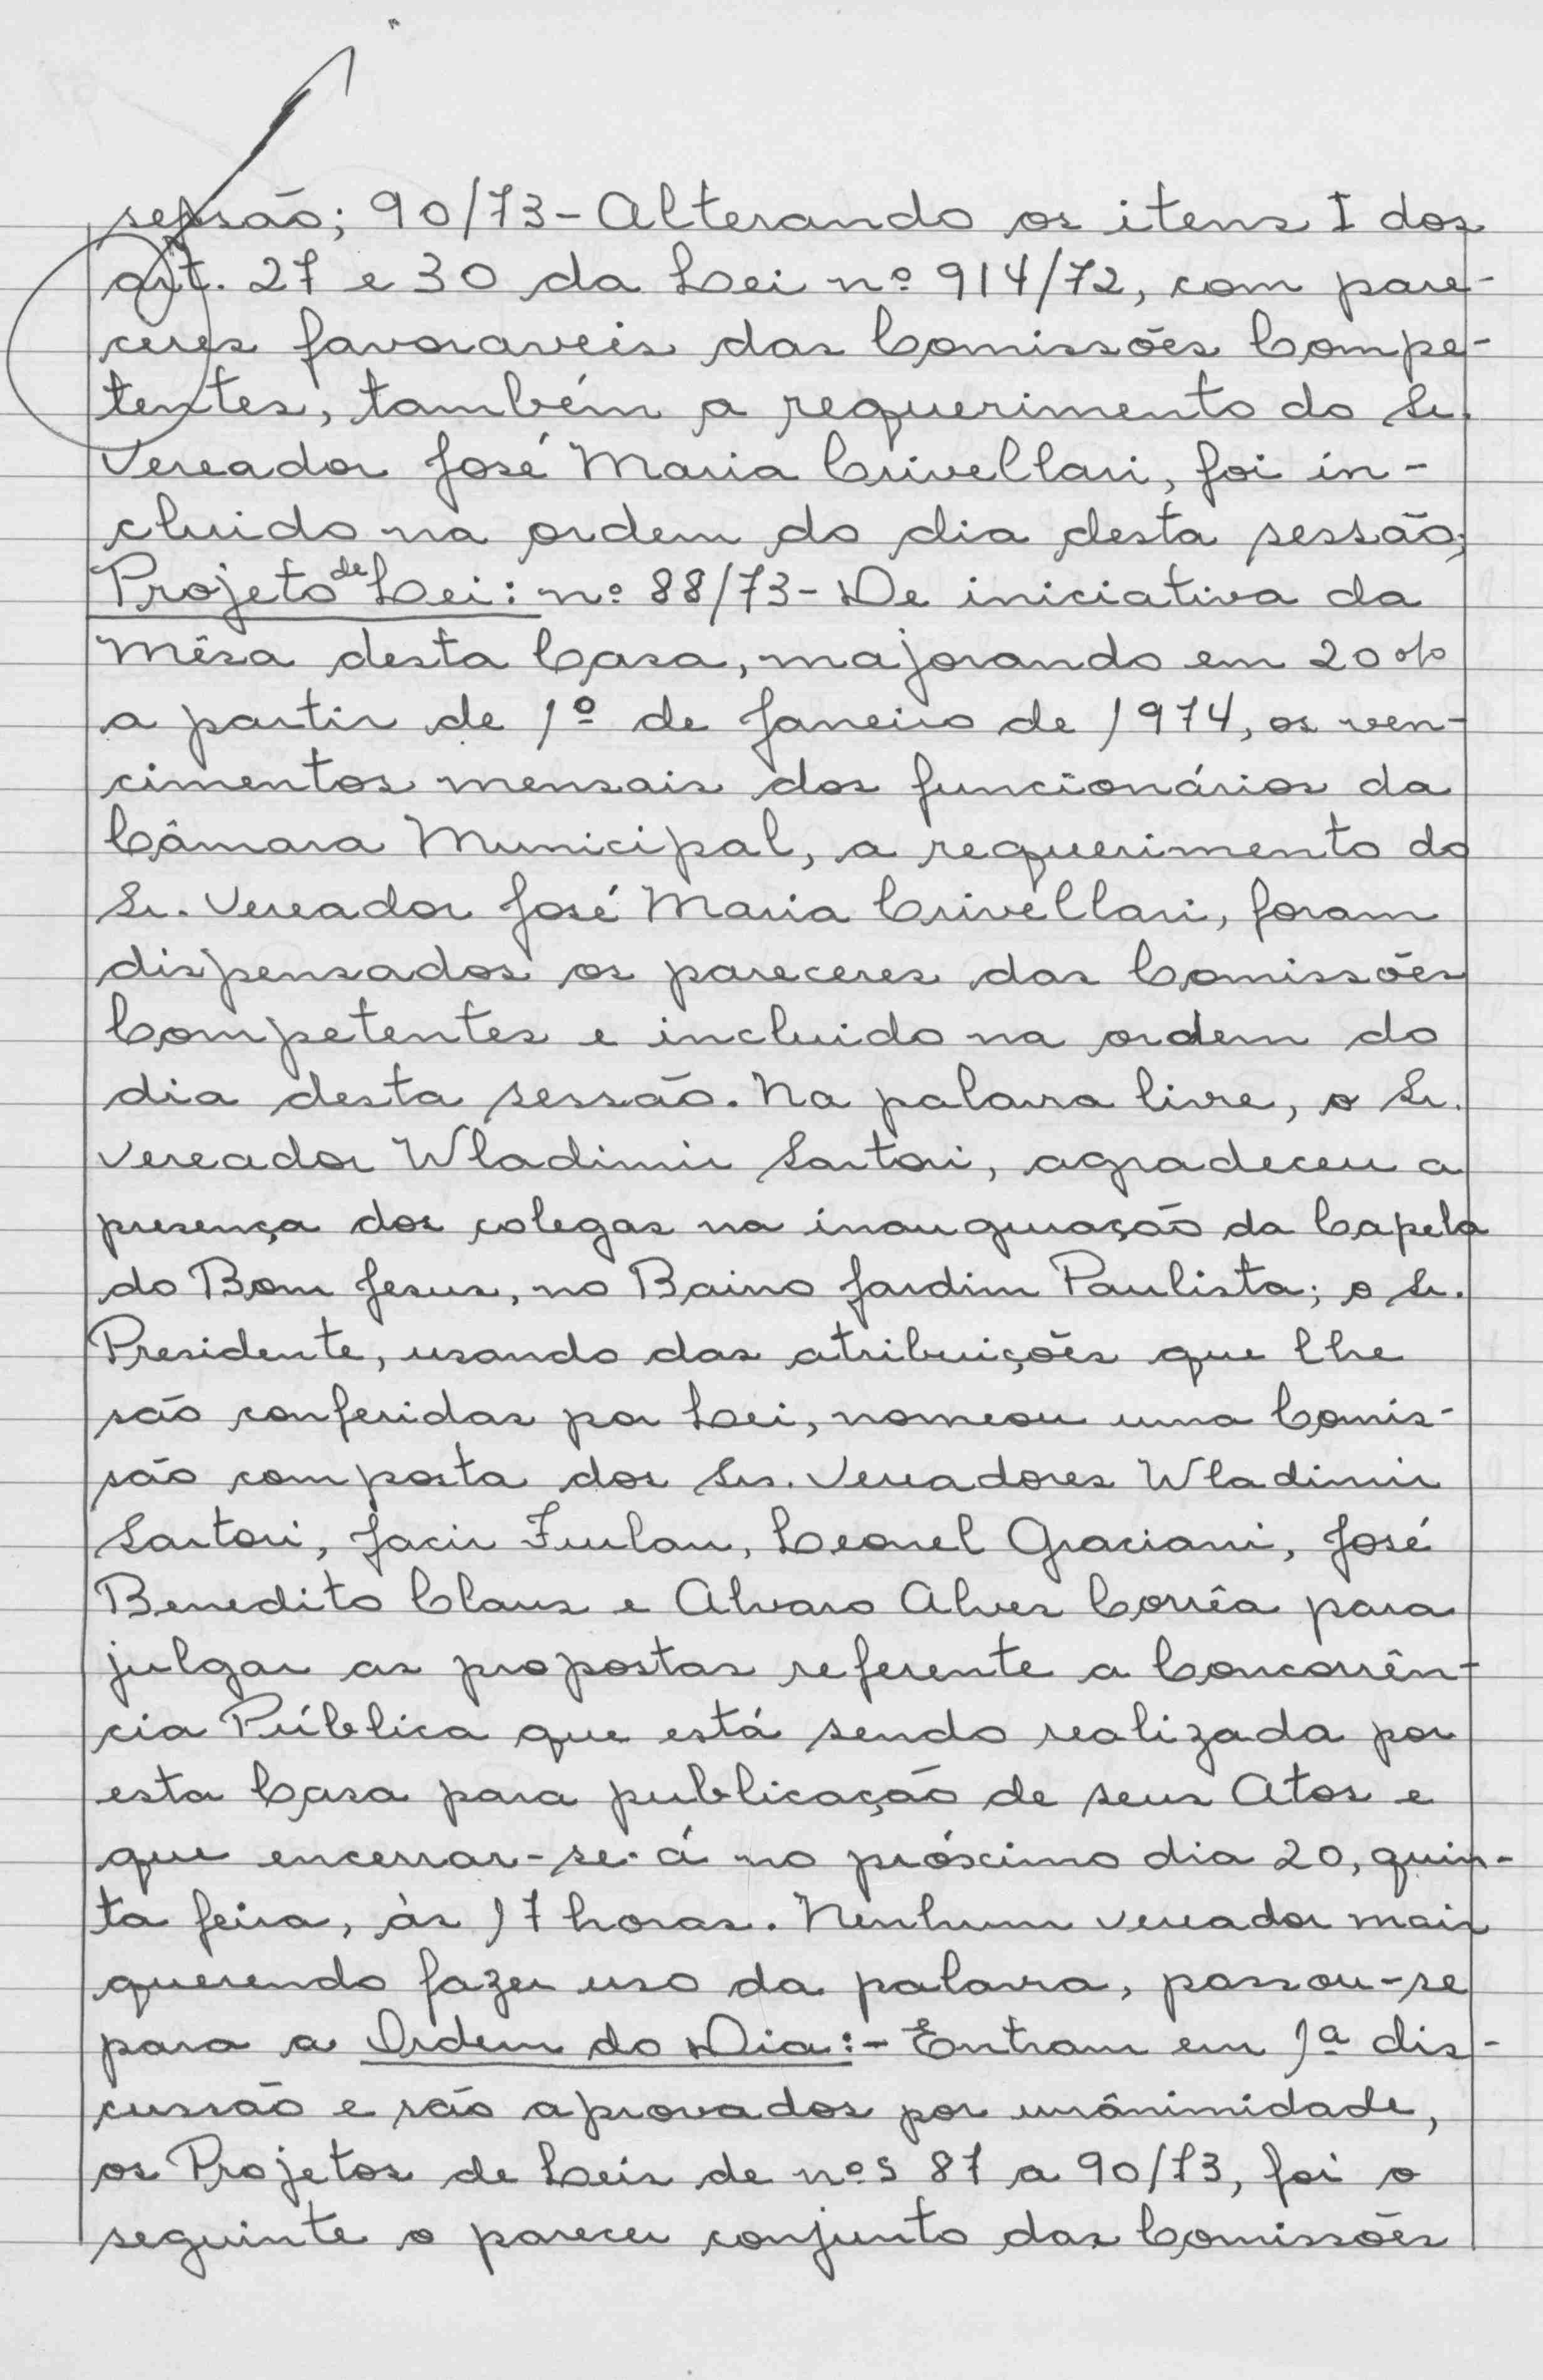 sessão; 90/73 - Alterando os itens I dos
art. 27 e 30 da Lei nº 914/72, com pare-
ceres favoraveis das Comissões Compe-
tentes, também a requerimento do Sr.
Vereador José Maria Crivellari, foi in-
cluido na ordem do dia desta sessão;
Projeto de Lei: nº 88/73 - De iniciativa da
Mêsa desta Casa, majorando em 20%
a partir de 1º de Janeiro de 1974, os ven-
cimentos mensais dos funcionários da
Câmara Municipal, a requerimento do
Sr. Vereador José Maria Crivellari, foram
dispensados os pareceres das Comissões
Competentes e incluido na ordem do
dia desta sessão. Na palavra livre, o Sr.
Vereador Wladimir Sartori, agradeceu a
presença dos colegas na inauguração da Capela
do Bom Jesus, no Bairro Jardim Paulista; o Sr.
Presidente, usando das atribuições que lhe
são conferidas por Lei, nomeou uma Comis-
são composta dos Srs. Vereadores Wladimir
Sartori, Jacir Furlan, Leonel Graciani, José
Benedito Claus e Alvaro Alves Corrêa para
julgar as propostas referente a Concorrên-
cia Pública que está sendo realizada por
esta Casa para publicação de seus Atos e
que encerrar-se-á no próximo dia 20, quin-
ta feira, às 17 horas. Nenhum vereador mais
querendo fazer uso da palavra, passou-se
para a Ordem do Dia:- Entram em 1ª dis-
cussão e são aprovados por unânimidade,
os Projetos de Leis de nºs 87 a 90/73, foi o
seguinte o parecer conjunto das Comissões